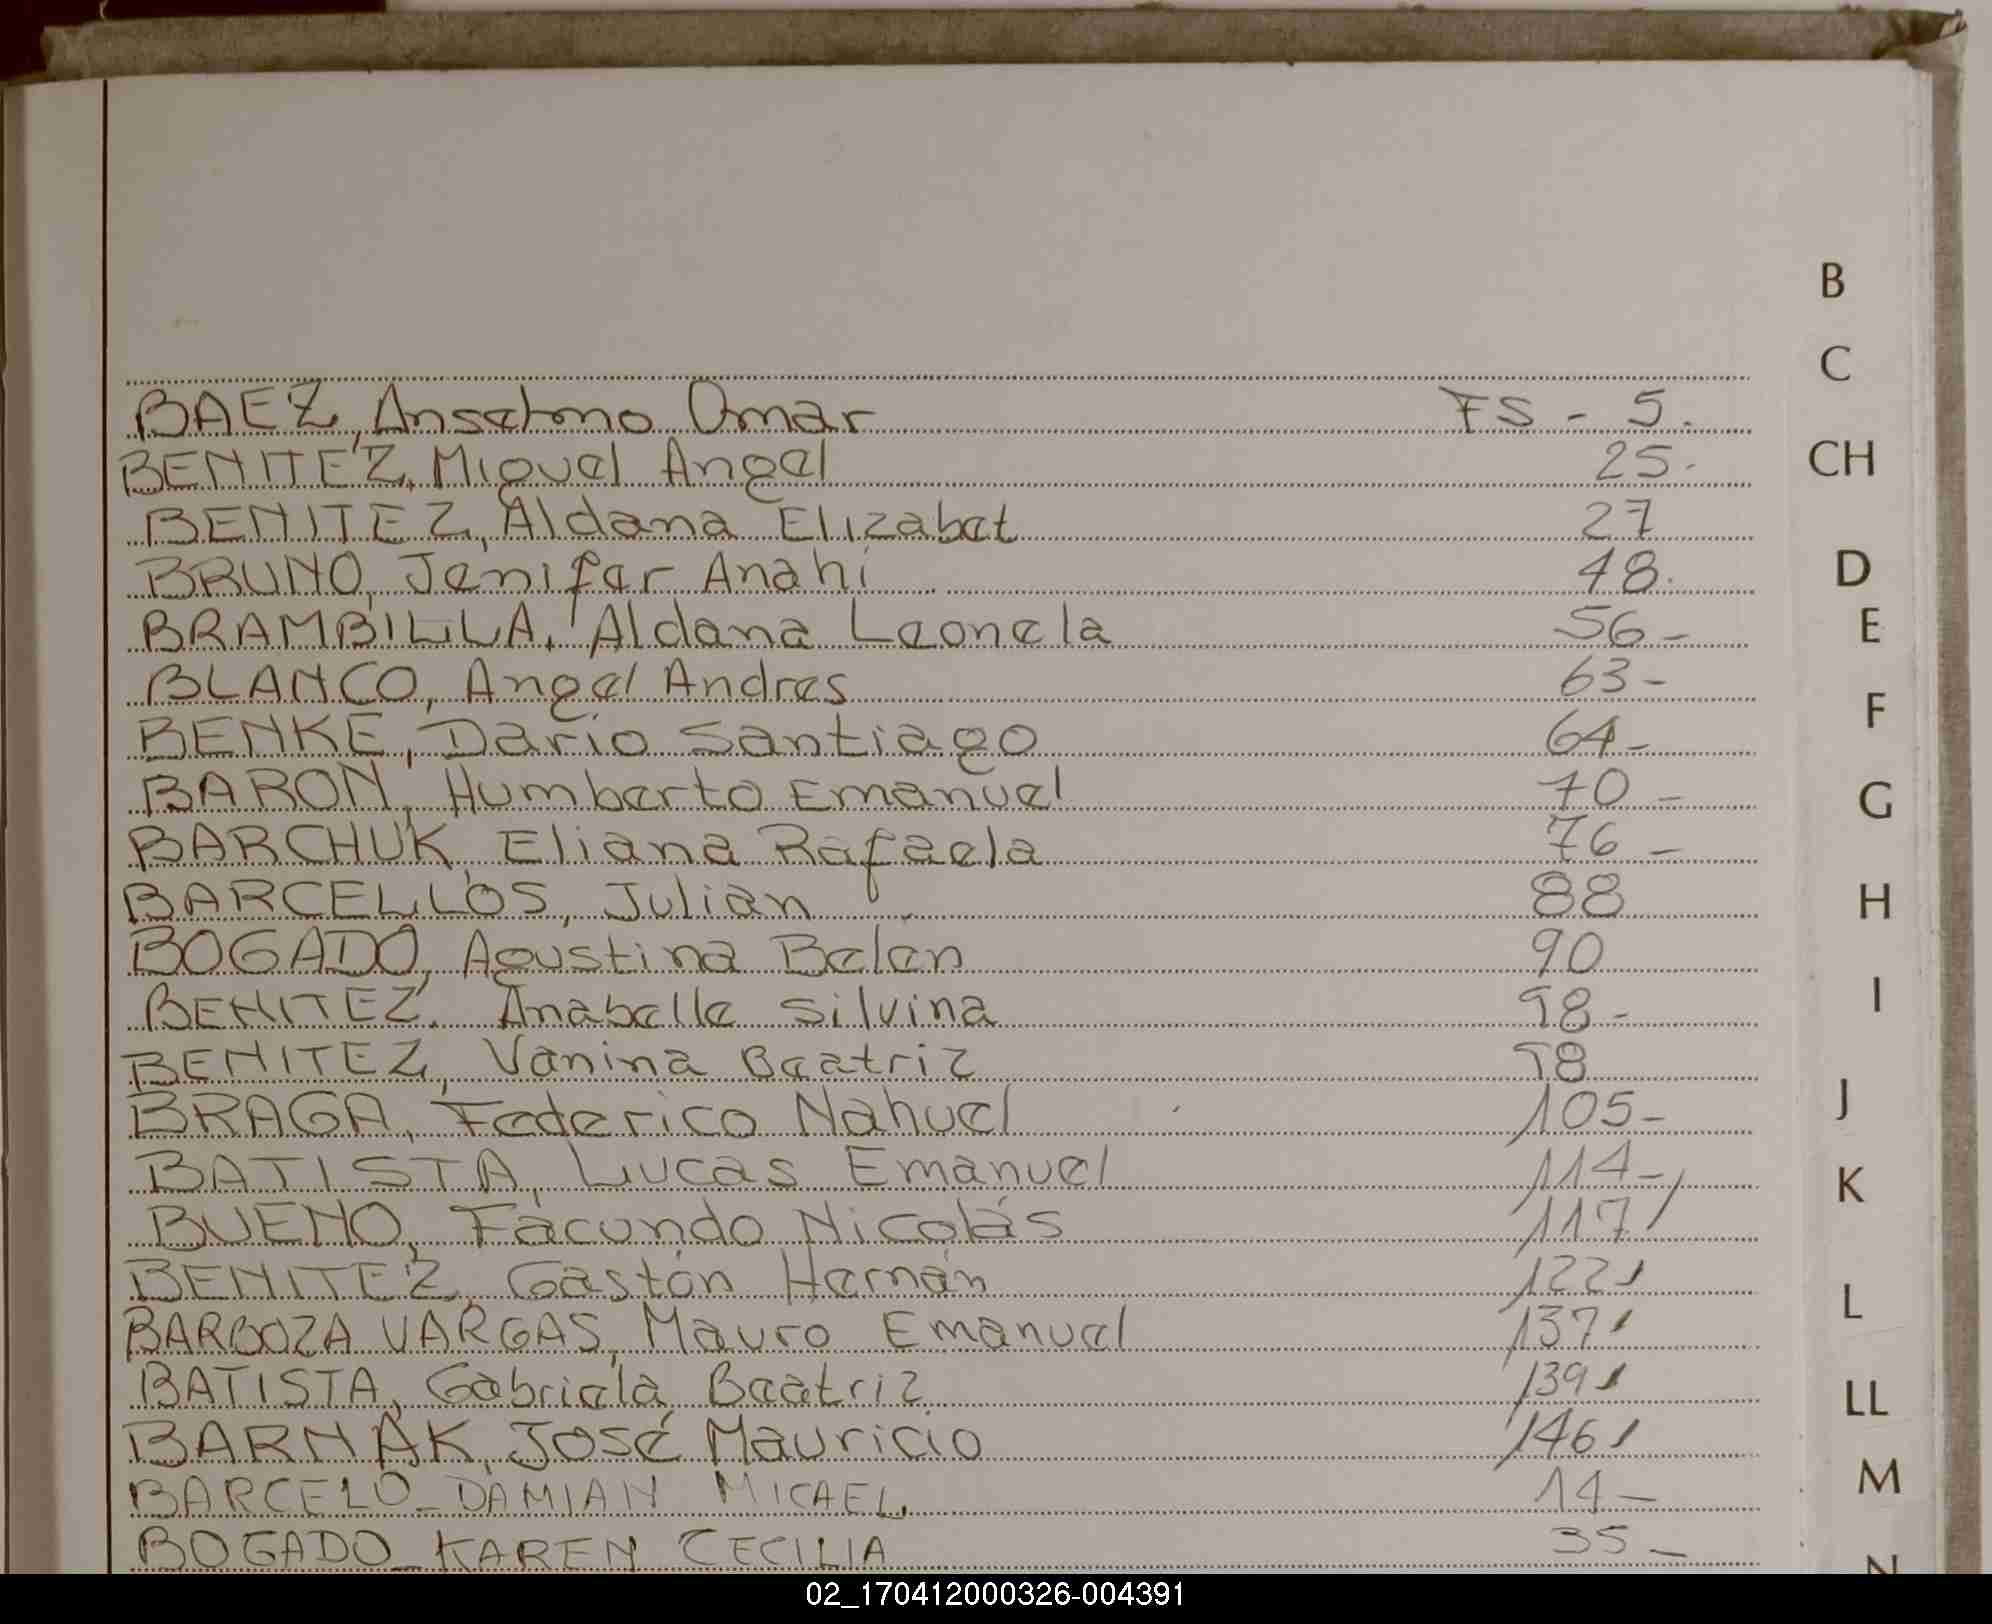 BAEZ, Anselmo Omar FS - 5.
BENITEZ, Miguel Angel 25.
BENITEZ, Aldana Elizabet 27
BRUNO, Jenifer Anahí 48.
BRAMBILLA, Aldana Leonela 56-
BLANCO, Angel Andres 63-
BENKE, Dario Santiago 64-
BARON, Humberto Emanuel 70-
BARCHUK, Eliana Rafaela 76-
BARCELLOS, Julián 88
BOGADO, Agustina Belen 90
BENITEZ, Anabelle Silvina 98-
BENITEZ, Vanina Beatriz 98
BRAGA, Federico Nahuel 105-
BATISTA, Lucas Emanuel 114-
BUENO, Facundo Nicolás 117/
BENITEZ, Gastón Hernán 122/
BARBOZA VARGAS, Mauro Emanuel 137/
BATISTA, Gabriela Beatriz 139/
BARNAK, José Mauricio 146/
BARCELO_DAMIAN MICAEL. 14-
BOGADO_KAREN CECILIA 35-
B
C
CH
D
E
F
G
H
I
J
K
L
LL
M
N
02_170412000326-004391